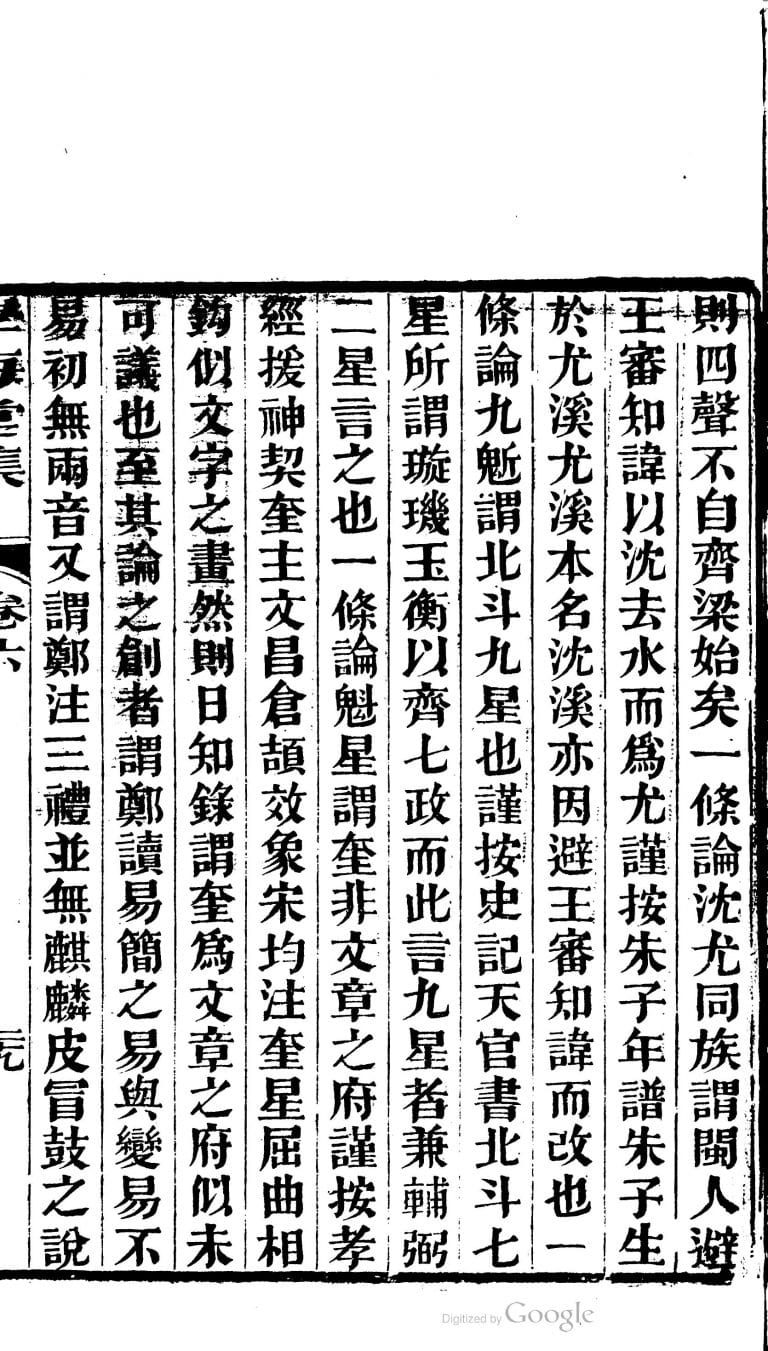 則四聲不自齊梁始矣一條論沈尤同族謂閩人避
王審知諱以沈去水而爲尤謹按朱子年譜朱子生
於尤溪尤溪本名沈溪亦因避王審知諱而改也一
條論九魁謂北斗九星也謹按史記天官書北斗七
星所謂璇璣玉衡以齊七政而此言九星者兼輔弼
二星言之也一條論魁星謂奎非文章之府謹按孝
經援神契奎主文昌倉頡效象宋均注奎星屈曲相
鈎似文字之畫然則日知錄謂奎爲文章之府似未
可議也至其論之創者謂鄭讀易簡之易與變易不
易初無兩音又謂鄭注三禮並無麒麟皮冒鼓之說
集 卷六 二九
Digitized by Google